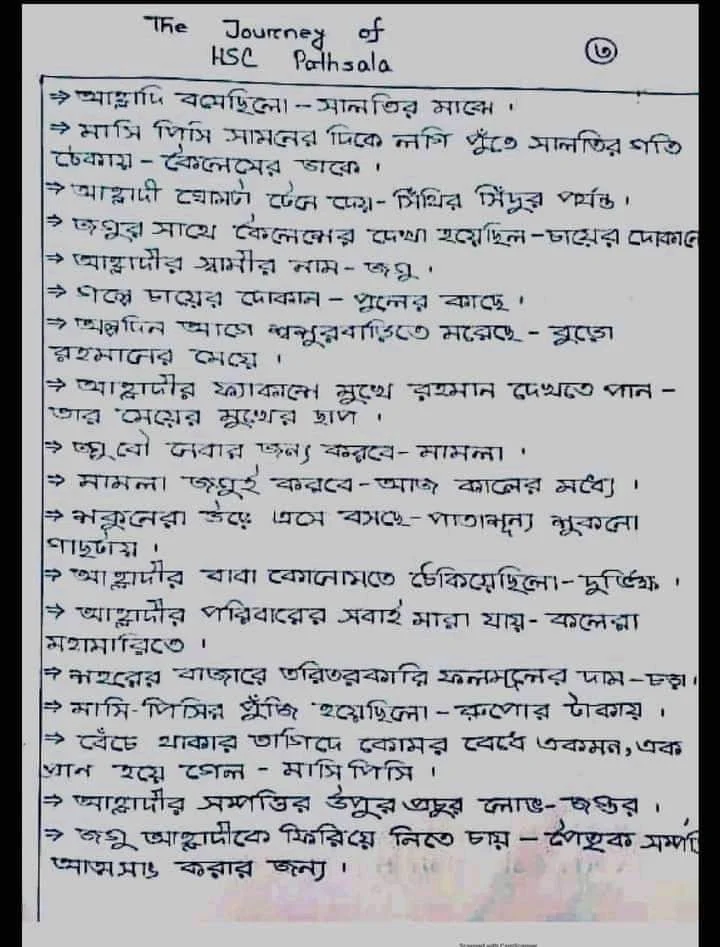 The Journey of
HSC Pathsala
৩
⇒ আহ্লাদি বসেছিলো - সালতির মাঝে ।
⇒ মাসি পিসি সামনের দিকে লগি পুঁতে সালতির গতি
ঠেকায় - কৈলেসের ডাকে ।
⇒ আহ্লাদী ঘোমটা টেনে দেয় - সিঁথির সিঁদুর পর্যন্ত ।
⇒ জগুর সাথে কৈলেশের দেখা হয়েছিল - চায়ের দোকানে
⇒ আহ্লাদীর স্বামীর নাম - জগু ।
⇒ গল্পে চায়ের দোকান - পুলের কাছে ।
⇒ অল্পদিন আগে শ্বশুরবাড়িতে মরেছে - বুড়ো
রহমানের মেয়ে ।
⇒ আহ্লাদীর ফ্যাকাশে মুখে রহমান দেখতে পান -
তার মেয়ের মুখের ছাপ ।
⇒ জগু বৌ নেবার জন্য করবে - মামলা ।
⇒ মামলা জগুই করবে - আজ কালের মধ্যে ।
⇒ শকুনেরা উড়ে এসে বসছে - পাতাশূন্য শুকনো
গাছটায় ।
⇒ আহ্লাদীর বাবা কোনোমতে ঠেকিয়েছিলো - দুর্ভিক্ষ ।
⇒ আহ্লাদীর পরিবারের সবাই মারা যায় - কলেরা
মহামারিতে ।
⇒ শহরের বাজারে তরিতরকারি ফলমূলের দাম - চড়া ।
⇒ মাসি-পিসির পুঁজি হয়েছিলো - রুপোর টাকায় ।
⇒ বেঁচে থাকার তাগিদে কোমর বেধে একমন, এক
প্রান হয়ে গেল - মাসি পিসি ।
⇒ আহ্লাদীর সম্পত্তির উপুর প্রচুর লোভ - জগুর ।
⇒ জগু আহ্লাদীকে ফিরিয়ে নিতে চায় - পৈতৃক সম্পত্তি
আত্মসাৎ করার জন্য ।
Scanned with CamScanner